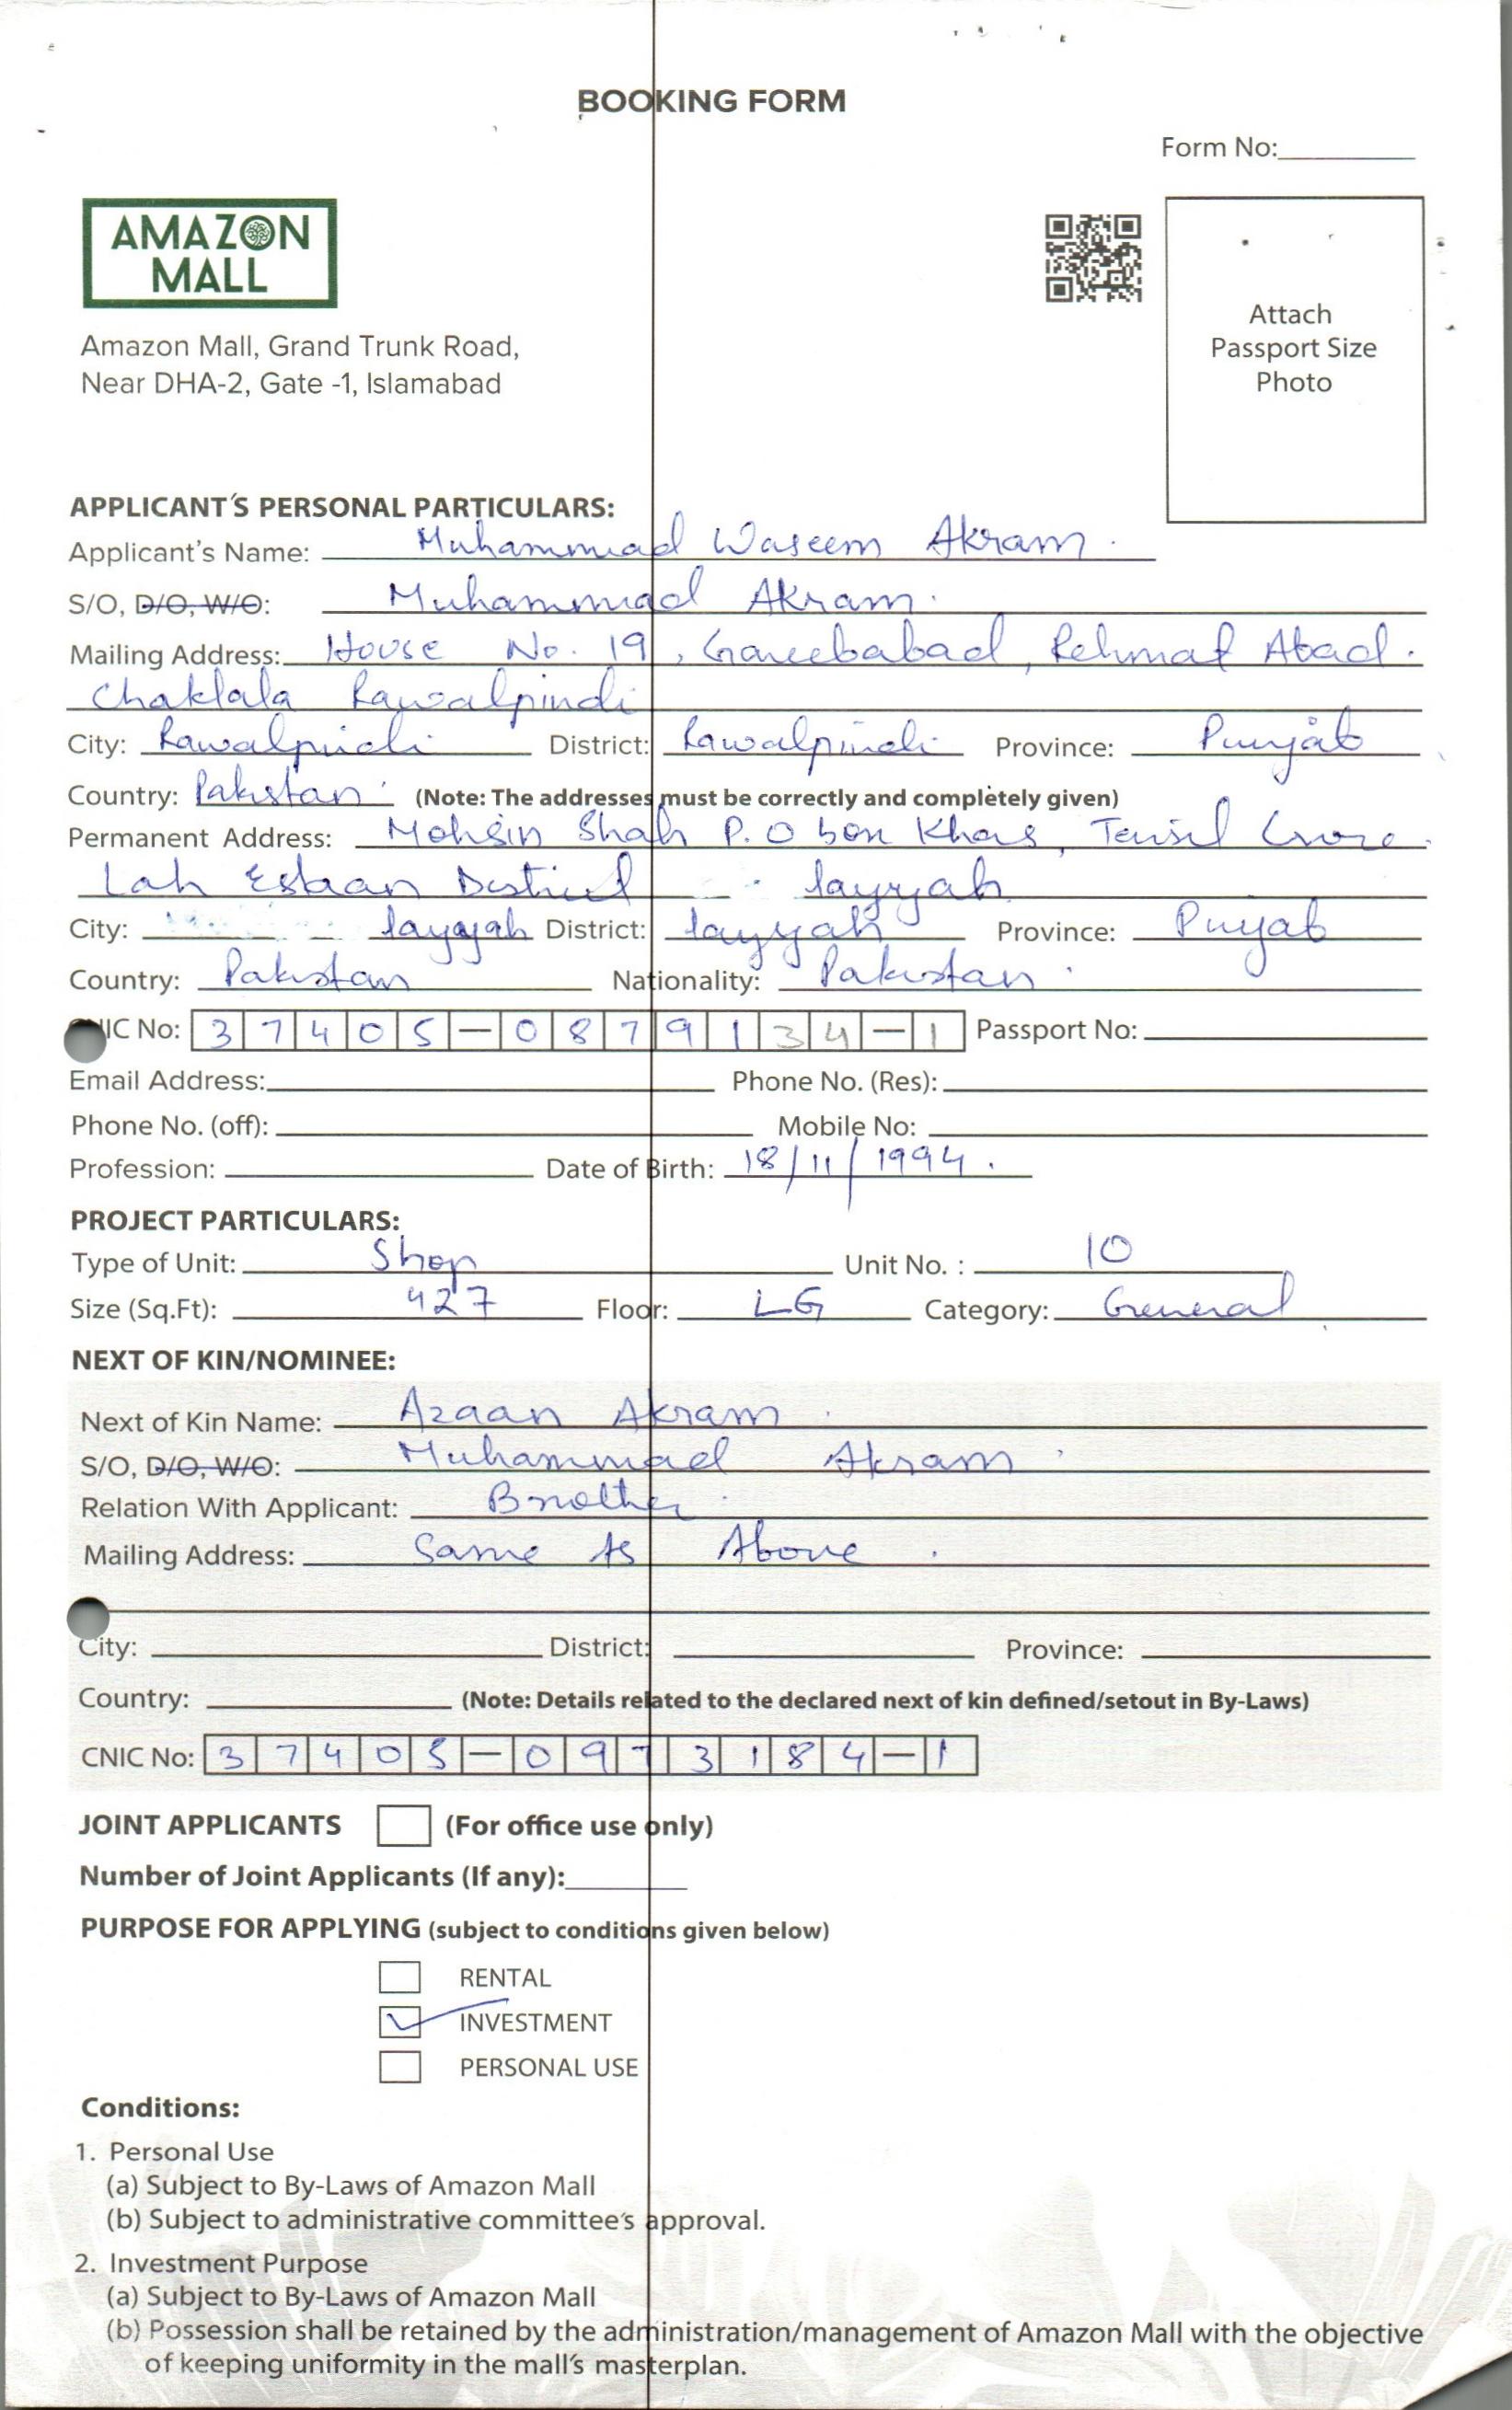 BOOKING FORM
Form No:
AMAZON
MALL
Amazon Mall, Grand Trunk Road,
Near DHA-2, Gate -1, Islamabad
Attach
Passport Size
Photo
APPLICANT'S PERSONAL PARTICULARS:
Applicant's Name: Muhammad Waseem Akram.
S/O, D/O, W/O: Muhammad Akram.
Mailing Address: House No. 19, Gareebabad, Rehmat Abad.
Chaklala Rawalpindi
City: Rawalpindi District: Rawalpindi Province: Punjab
Country: Pakistan (Note: The addresses must be correctly and completely given)
Permanent Address: Mohsin Shah P.O box Khas,
Lah District layyah
City: layyah District: layyah Province: Punjab
Country: Pakistan Nationality: Pakistan.
CNIC No: 37405-0879134-1 Passport No:
Email Address: Phone No. (Res):
Phone No. (off): Mobile No:
Profession: Date of Birth: 18/11/1994.
PROJECT PARTICULARS:
Type of Unit: Shop Unit No. : 10
Size (Sq.Ft): 427 Floor: LG Category: General
NEXT OF KIN/NOMINEE:
Next of Kin Name: Azaan Akram
S/O, D/O, W/O: Muhammad Akram
Relation With Applicant: Brother
Mailing Address: Same As Above.
City: District: Province:
Country: (Note: Details related to the declared next of kin defined/setout in By-Laws)
CNIC No: 37405-0973184-1
JOINT APPLICANTS (For office use only)
Number of Joint Applicants (If any):
PURPOSE FOR APPLYING (subject to conditions given below)
RENTAL
INVESTMENT
PERSONAL USE
Conditions:
1. Personal Use
(a) Subject to By-Laws of Amazon Mall
(b) Subject to administrative committee's approval.
2. Investment Purpose
(a) Subject to By-Laws of Amazon Mall
(b) Possession shall be retained by the administration/management of Amazon Mall with the objective
of keeping uniformity in the mall's masterplan.